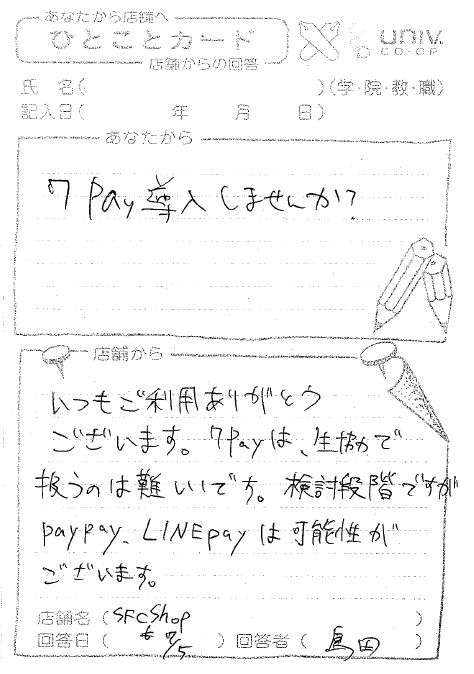 あなたから店舗へ
ひとことカード
店舗からの回答
univ.
CO-OP
氏 名( )(学・院・教・職)
記入日( 年 月 日)
あなたから
7 Pay 導入しませんか?
店舗から
いつもご利用ありがとう
ございます。7Payは、生協で
扱うのは難しいです。検討段階ですが
paypay、LINEpayは可能性が
ございます。
店舗名(SFCShop )
回答日( 7/5 )回答者( 島田 )